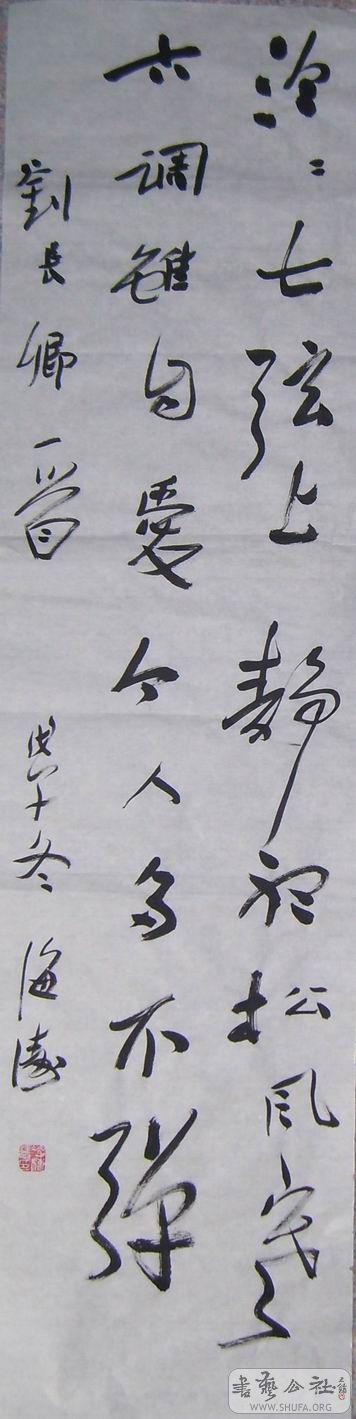 泠〻七弦上靜聽松风寒
古调雖自愛今人多不弹
劉長卿一首 戊子冬 海涛
書藝公社
WWW.SHUFA.ORG